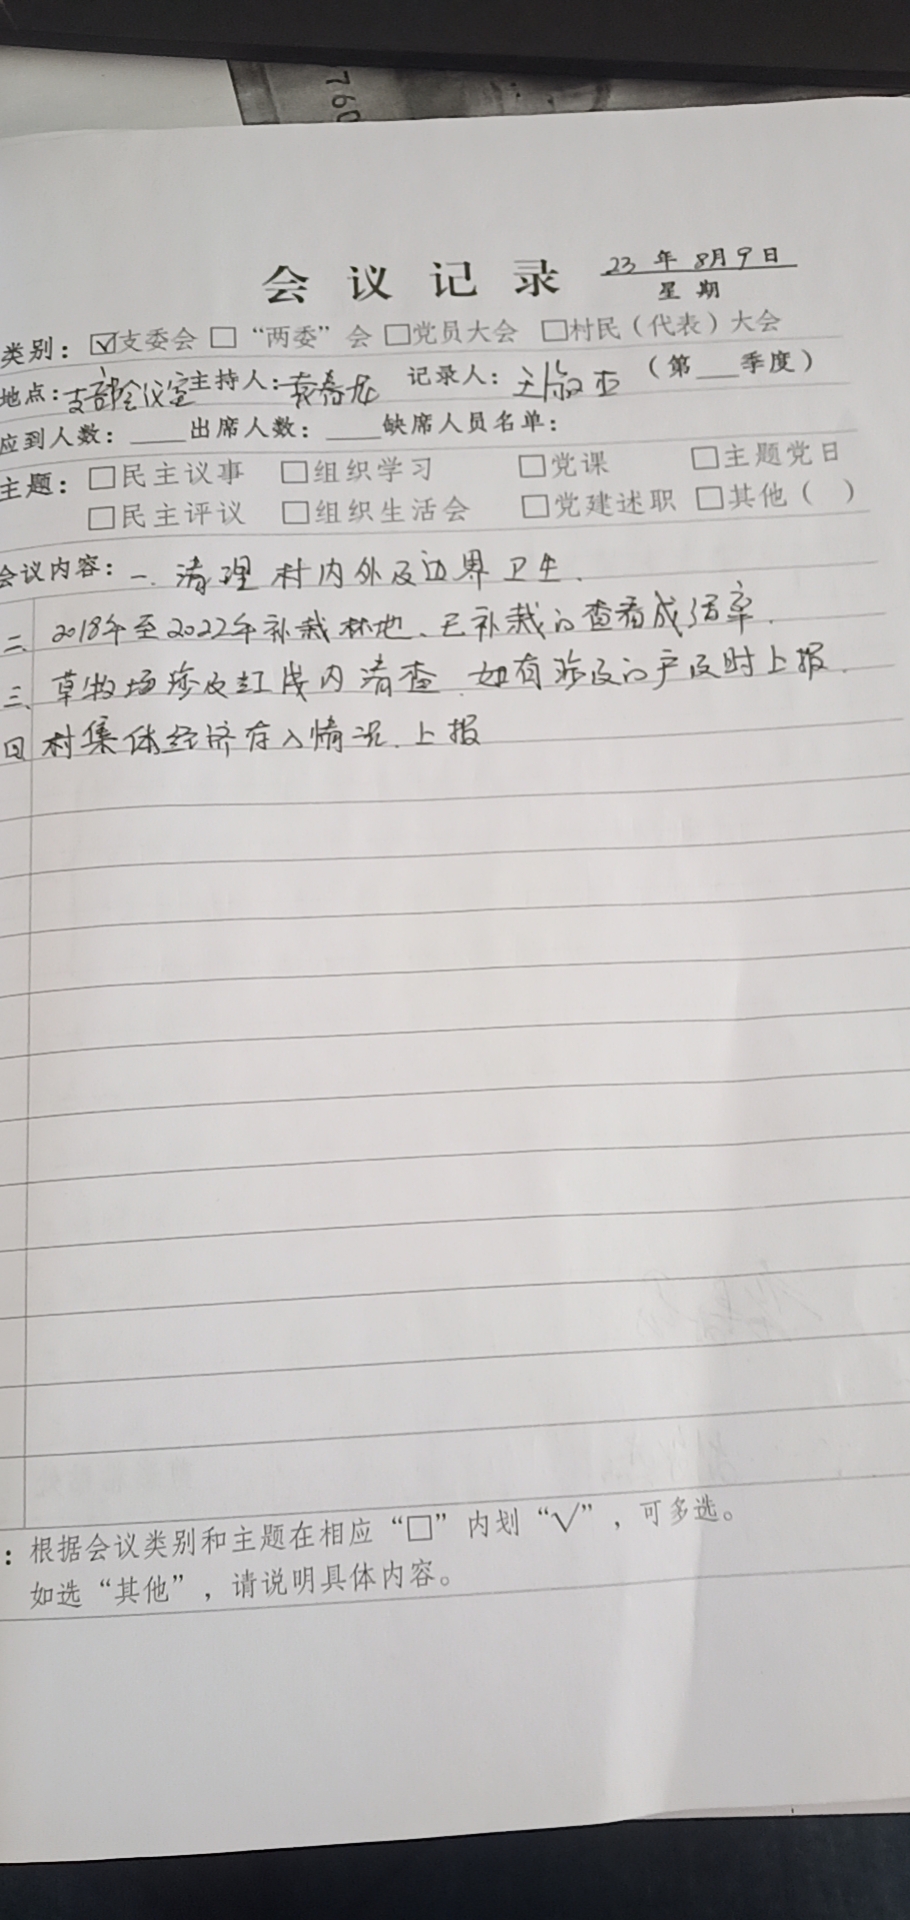 760
会议记录 23年8月9日
星期
类别：☑支委会 □“两委”会 □党员大会 □村民（代表）大会
地点：支部会议室 主持人：袁春龙 记录人：王淑杰 （第___季度）
应到人数：____出席人数：____缺席人员名单：
主题：□民主议事 □组织学习 □党课 □主题党日
□民主评议 □组织生活会 □党建述职 □其他（ ）
会议内容：一.清理村内外及边界卫生.
二、2018年至2022年补栽林地、已补栽的查看成活率.
三、草牧场涉及红线内清查.如有涉及的户及时上报.
四 村集体经济存入情况.上报
：根据会议类别和主题在相应“□”内划“√”，可多选。
如选“其他”，请说明具体内容。